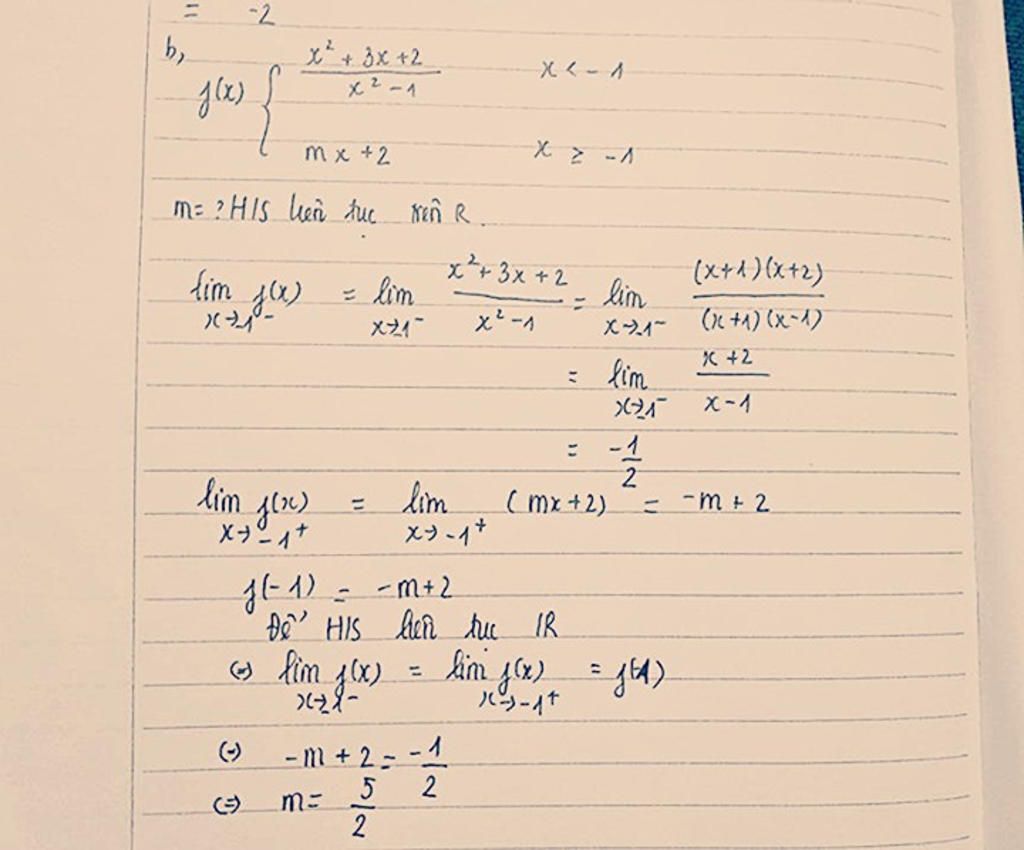 = -2
b,
f(x) { (x² + 3x + 2)/(x² - 1) x < -1
mx + 2 x ≥ -1
m = ? H/S liên tục trên R.
lim x→-1⁻ f(x) = lim x→-1⁻ (x² + 3x + 2)/(x² - 1) = lim x→-1⁻ ((x+1)(x+2))/((x+1)(x-1))
= lim x→-1⁻ (x+2)/(x-1)
= -1/2
lim x→-1⁺ f(x) = lim x→-1⁺ (mx+2) = -m + 2
f(-1) = -m+2
Để H/S liên tục R
(=) lim x→-1⁻ f(x) = lim x→-1⁺ f(x) = f(-1)
(=) -m + 2 = -1/2
(=) m = 5/2